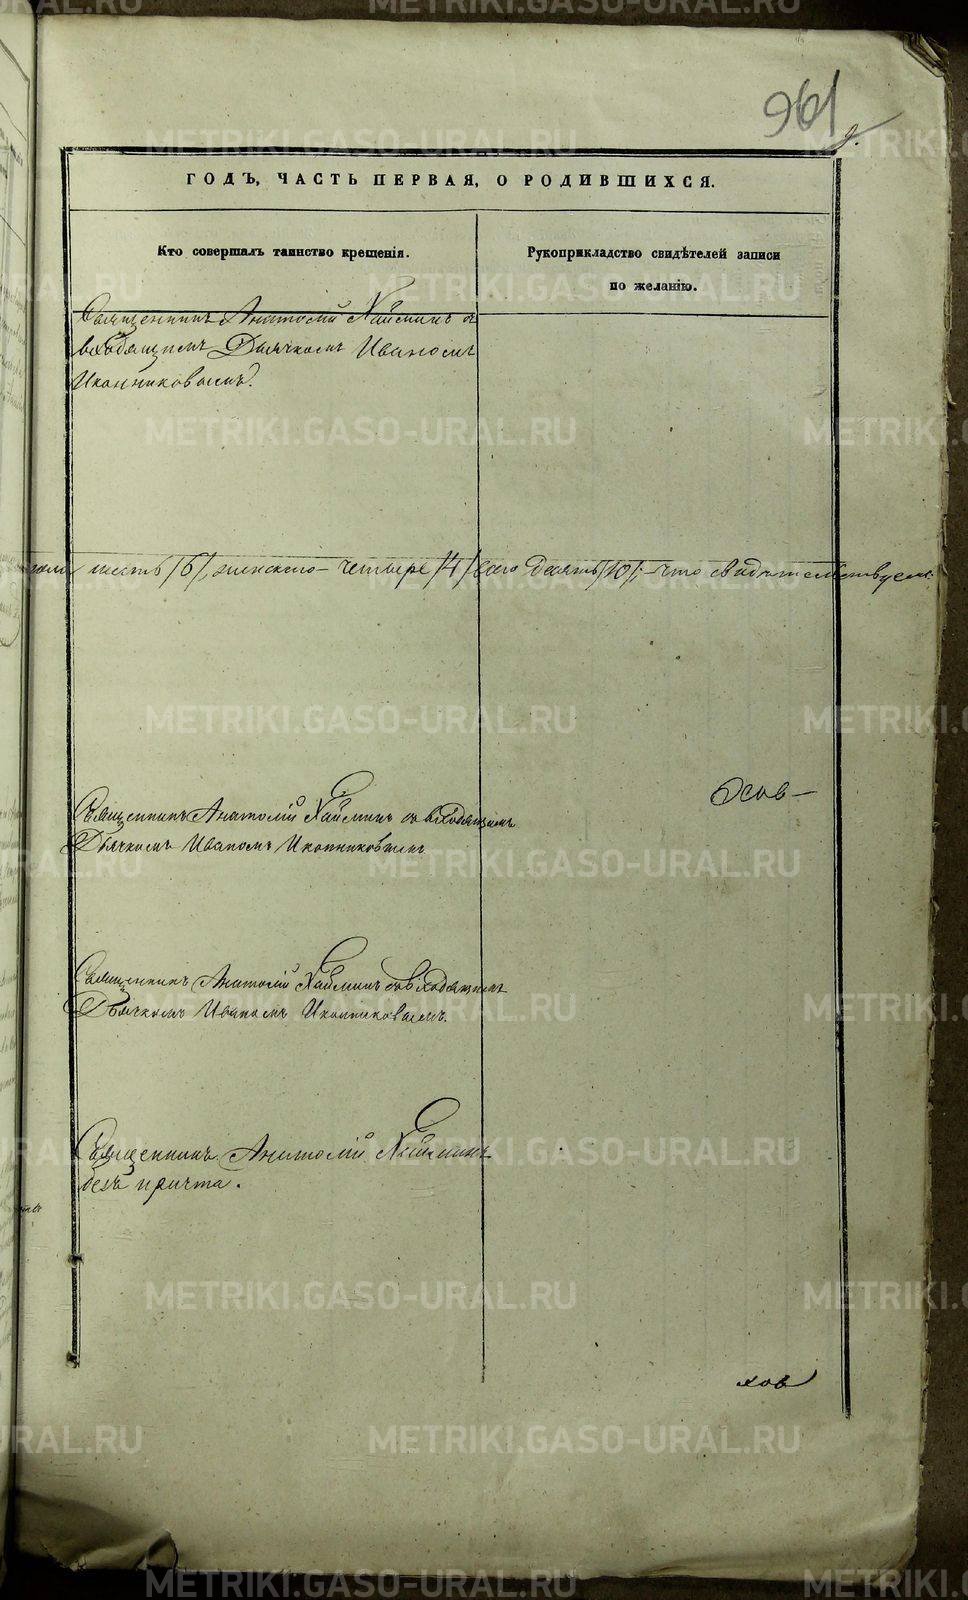 961
ГОДЪ, ЧАСТЬ ПЕРВАЯ, О РОДИВШИХСЯ.
Кто совершалъ таинство крещенія.
Рукоприкладство свидѣтелей записи
по желанію.
Священникъ Анатолій Хаймин съ
входящимъ Дьячкомъ Иваномъ
Иконниковымъ.
шесть /6/, женскаго – четыре /4/ всего десять /10/; – что свидѣтельствуемъ:
Священникъ Анатолій Хаймин съ входящимъ
Дьячкомъ Иваномъ Иконниковымъ
Осов–
Священникъ Анатолій Хаймин съ входящимъ
Дьячкомъ Иваномъ Иконниковымъ.
Священникъ Анатолій Хаймин
безъ причта.
ков
METRIKI.GASO-URAL.RU